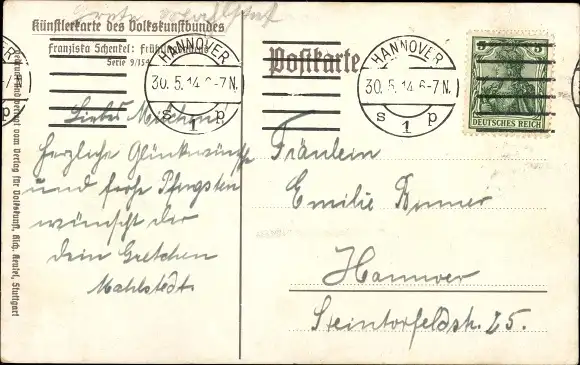 Künstlerkarte des Volkskunstbundes
Franziska Schenkel:
Serie 9/154
Postkarte
HANNOVER
30.5.14.6-7N.
s 1 p
HANNOVER
30.5.14.6-7N.
s 1 p
5
DEUTSCHES REICH
Liebes
herzliche Glückwünsche
und frohe Pfingsten
wünscht dir
dein Gretchen
Mahlstedt.
Fräulein
Emilie
Hannover
Steintorfeldstr. 25.
Verlag für Volkskunst, Rich. Keutel, Stuttgart